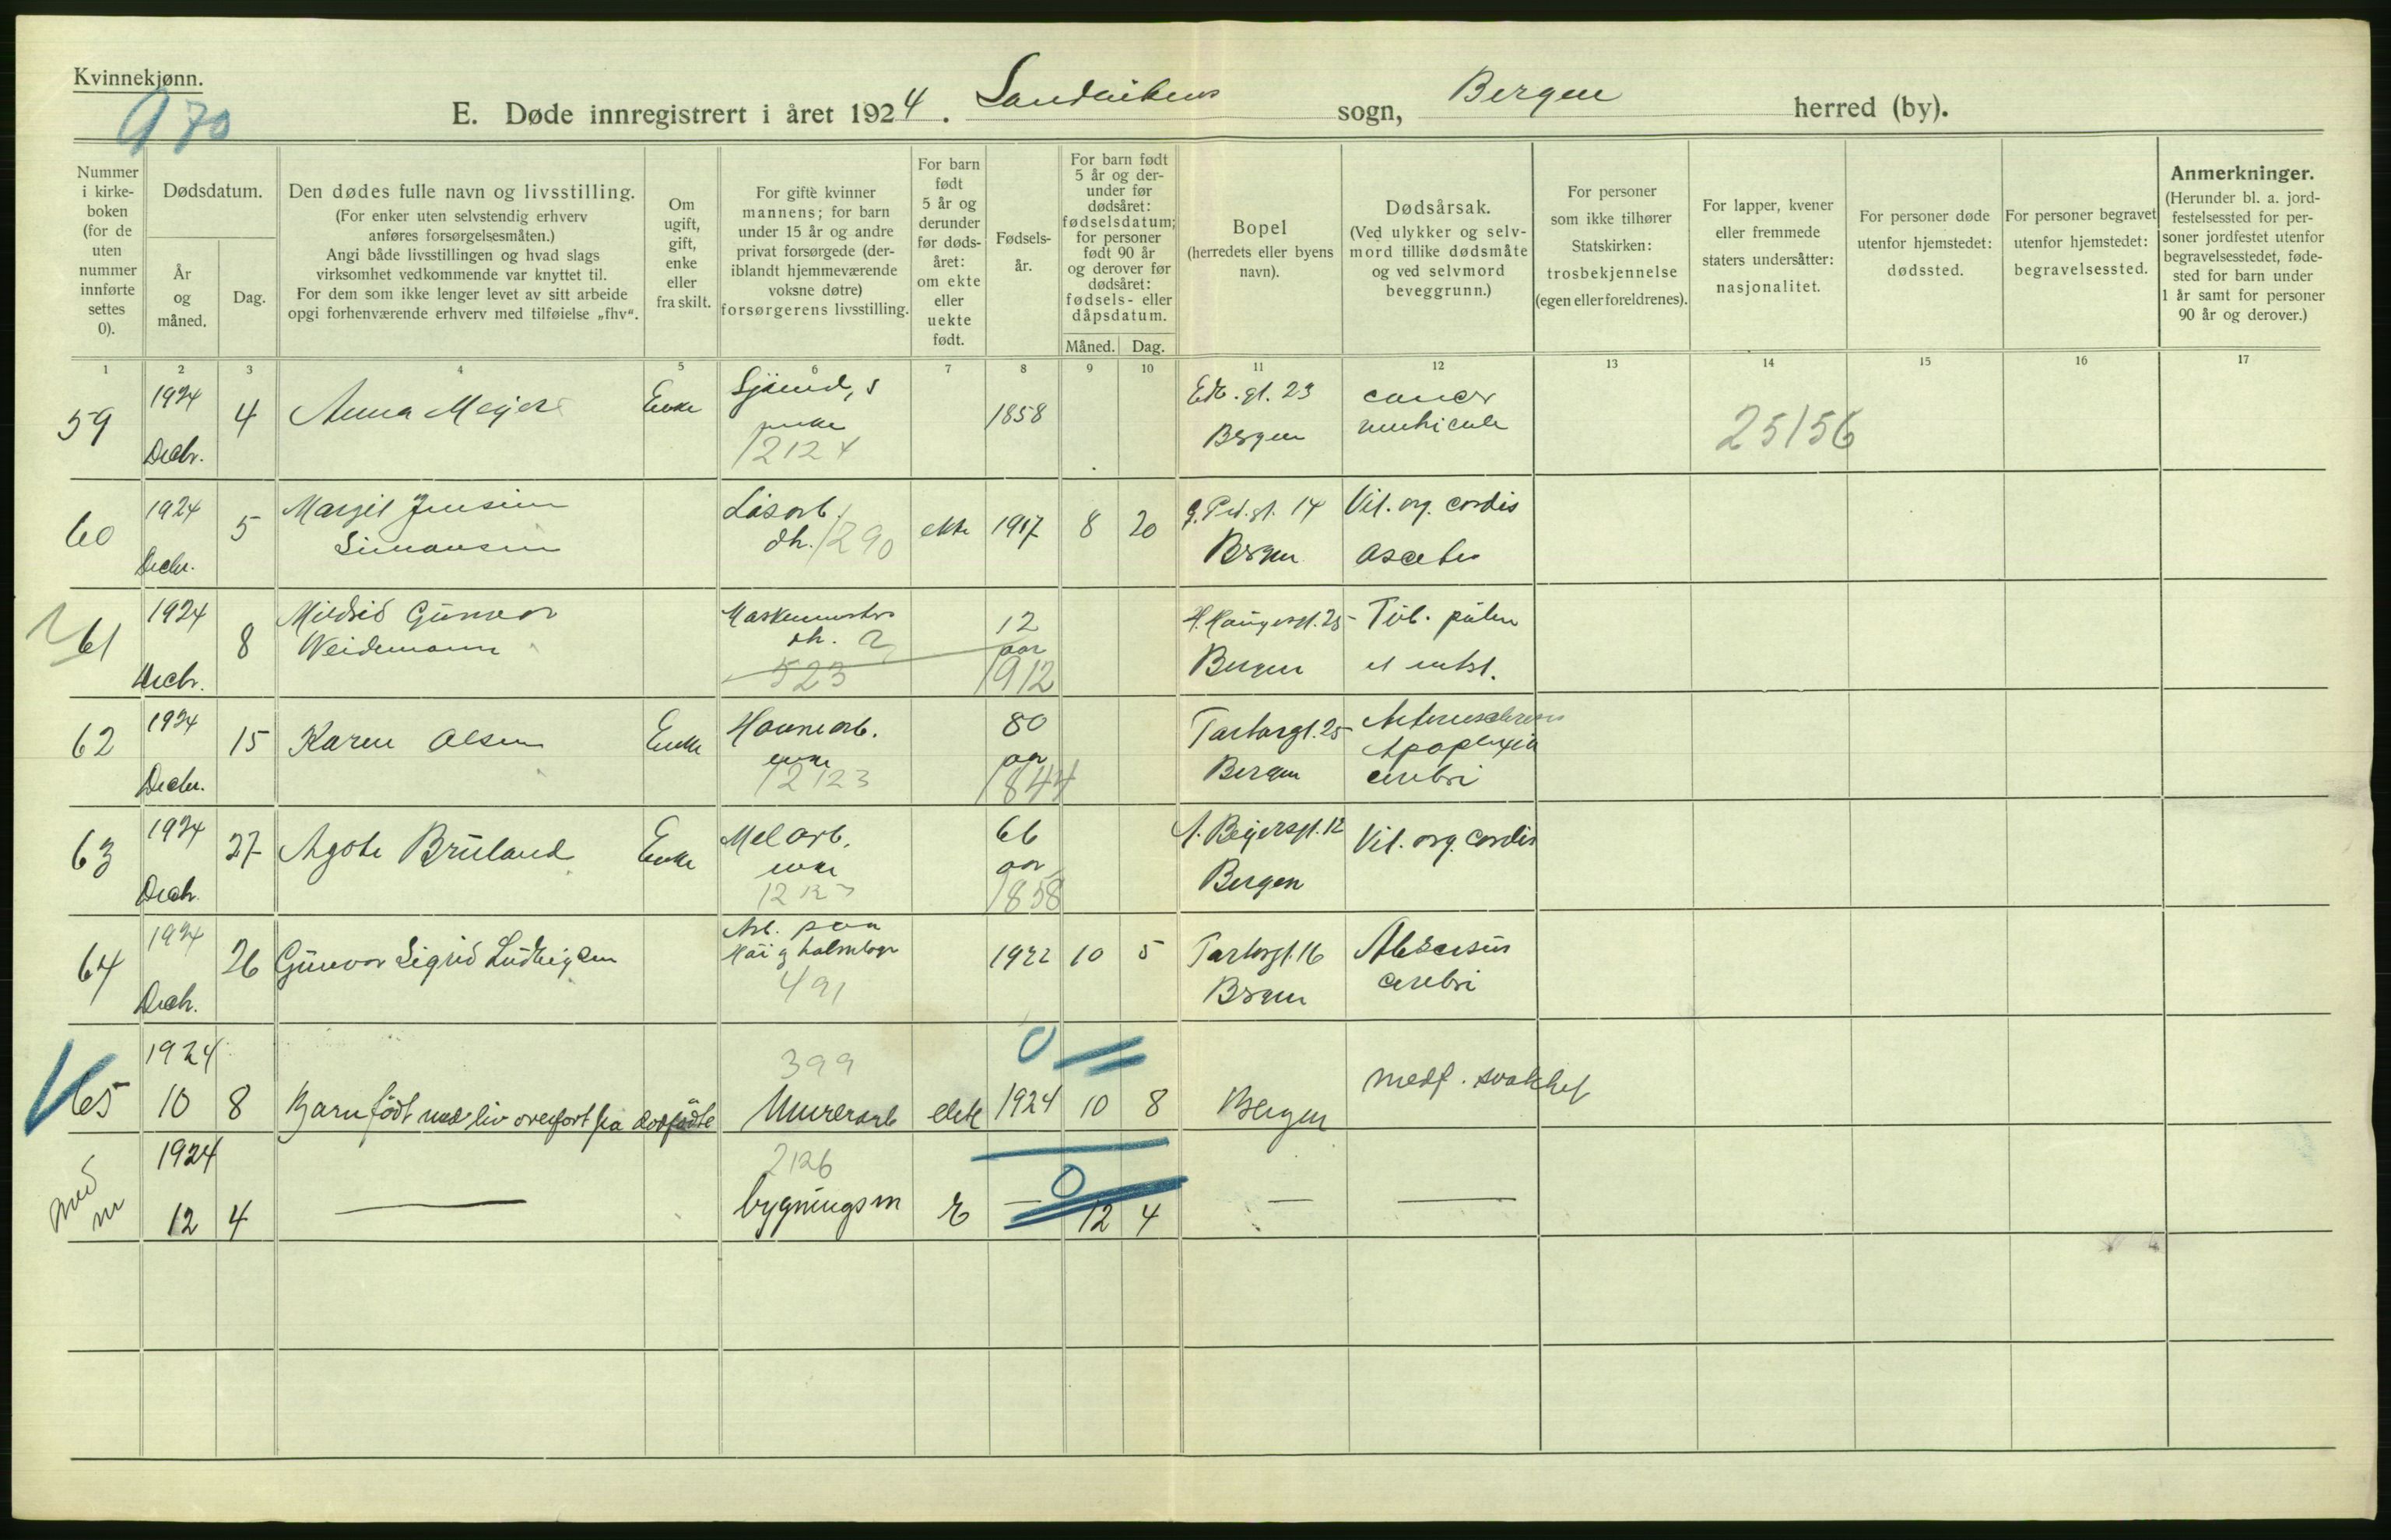 Kvinnekjønn.
970
E. Døde innregistrert i året 1924. Sandvikens sogn, Bergen herred (by).
Nummer i kirke-boken (for de uten nummer innførte settes 0).
Dødsdatum.
År og måned.
Dag.
Den dødes fulle navn og livsstilling.
(For enker uten selvstendig erhverv anføres forsørgelsesmåten.)
Angi både livsstillingen og hvad slags virksomhet vedkommende var knyttet til.
For dem som ikke lenger levet av sitt arbeide opgi forhenværende erhverv med tilføielse „fhv“.
Om ugift, gift, enke eller fraskilt.
For gifte kvinner mannens; for barn under 15 år og andre privat forsørgede (der-iblandt hjemmeværende voksne døtre) forsørgerens livsstilling.
For barn født 5 år og derunder før døds-året: om ekte eller uekte født.
Fødsels-år.
For barn født 5 år og der-under før dødsåret: fødselsdatum; for personer født 90 år og derover før dødsåret: fødsels- eller dåpsdatum.
Måned. Dag.
Bopel
(herredets eller byens navn).
Dødsårsak.
(Ved ulykker og selv-mord tillike dødsmåte og ved selvmord beveggrunn.)
For personer som ikke tilhører Statskirken: trosbekjennelse (egen eller foreldrenes).
For lapper, kvener eller fremmede staters undersåtter: nasjonalitet.
For personer døde utenfor hjemstedet: dødssted.
For personer begravet utenfor hjemstedet: begravelsessted.
Anmerkninger.
(Herunder bl. a. jord-festelsessted for per-soner jordfestet utenfor begravelsesstedet, føde-sted for barn under 1 år samt for personer 90 år og derover.)
1 2 3 4 5 6 7 8 9 10 11 12 13 14 15 16 17
59 1924 Decbr. 4 Anna Meyer Enke 1858 23 Bergen cancer 25156
60 1924 Decbr. 5 Margit Jensine Simonsen dh. 1290 ekte 1917 8 20 14 Bergen Vit. org. cordis
61 1924 Decbr. 8 Mildrid Gunvor Weidemann dh. 523 12 aar 1912 H. Haugesgt. 25 Bergen Tub. pulm et intst.
62 1924 Decbr. 15 Karen Olsen Enke Havnearb. enke 12123 80 aar 1844 Tartargt. 25 Bergen Apoplexia cerebri
63 1924 Decbr. 27 Agote Bruland Enke enke 66 aar 1858 A. Beyersgt. 12 Bergen Vit. org. cordis
64 1924 Decbr. 26 Gunvor Sigrid Ludvigsen Arb. paa 491 1922 10 5 Tartargt. 16 Bergen Abscesus cerebri
65 1924 10 8 Barn født med liv overført fra dødfødte 399 Murerarb ekte 0 1924 10 8 Bergen medf. svakhet
1924 12 4 — 2126 bygningsm E — 0 12 4 — —